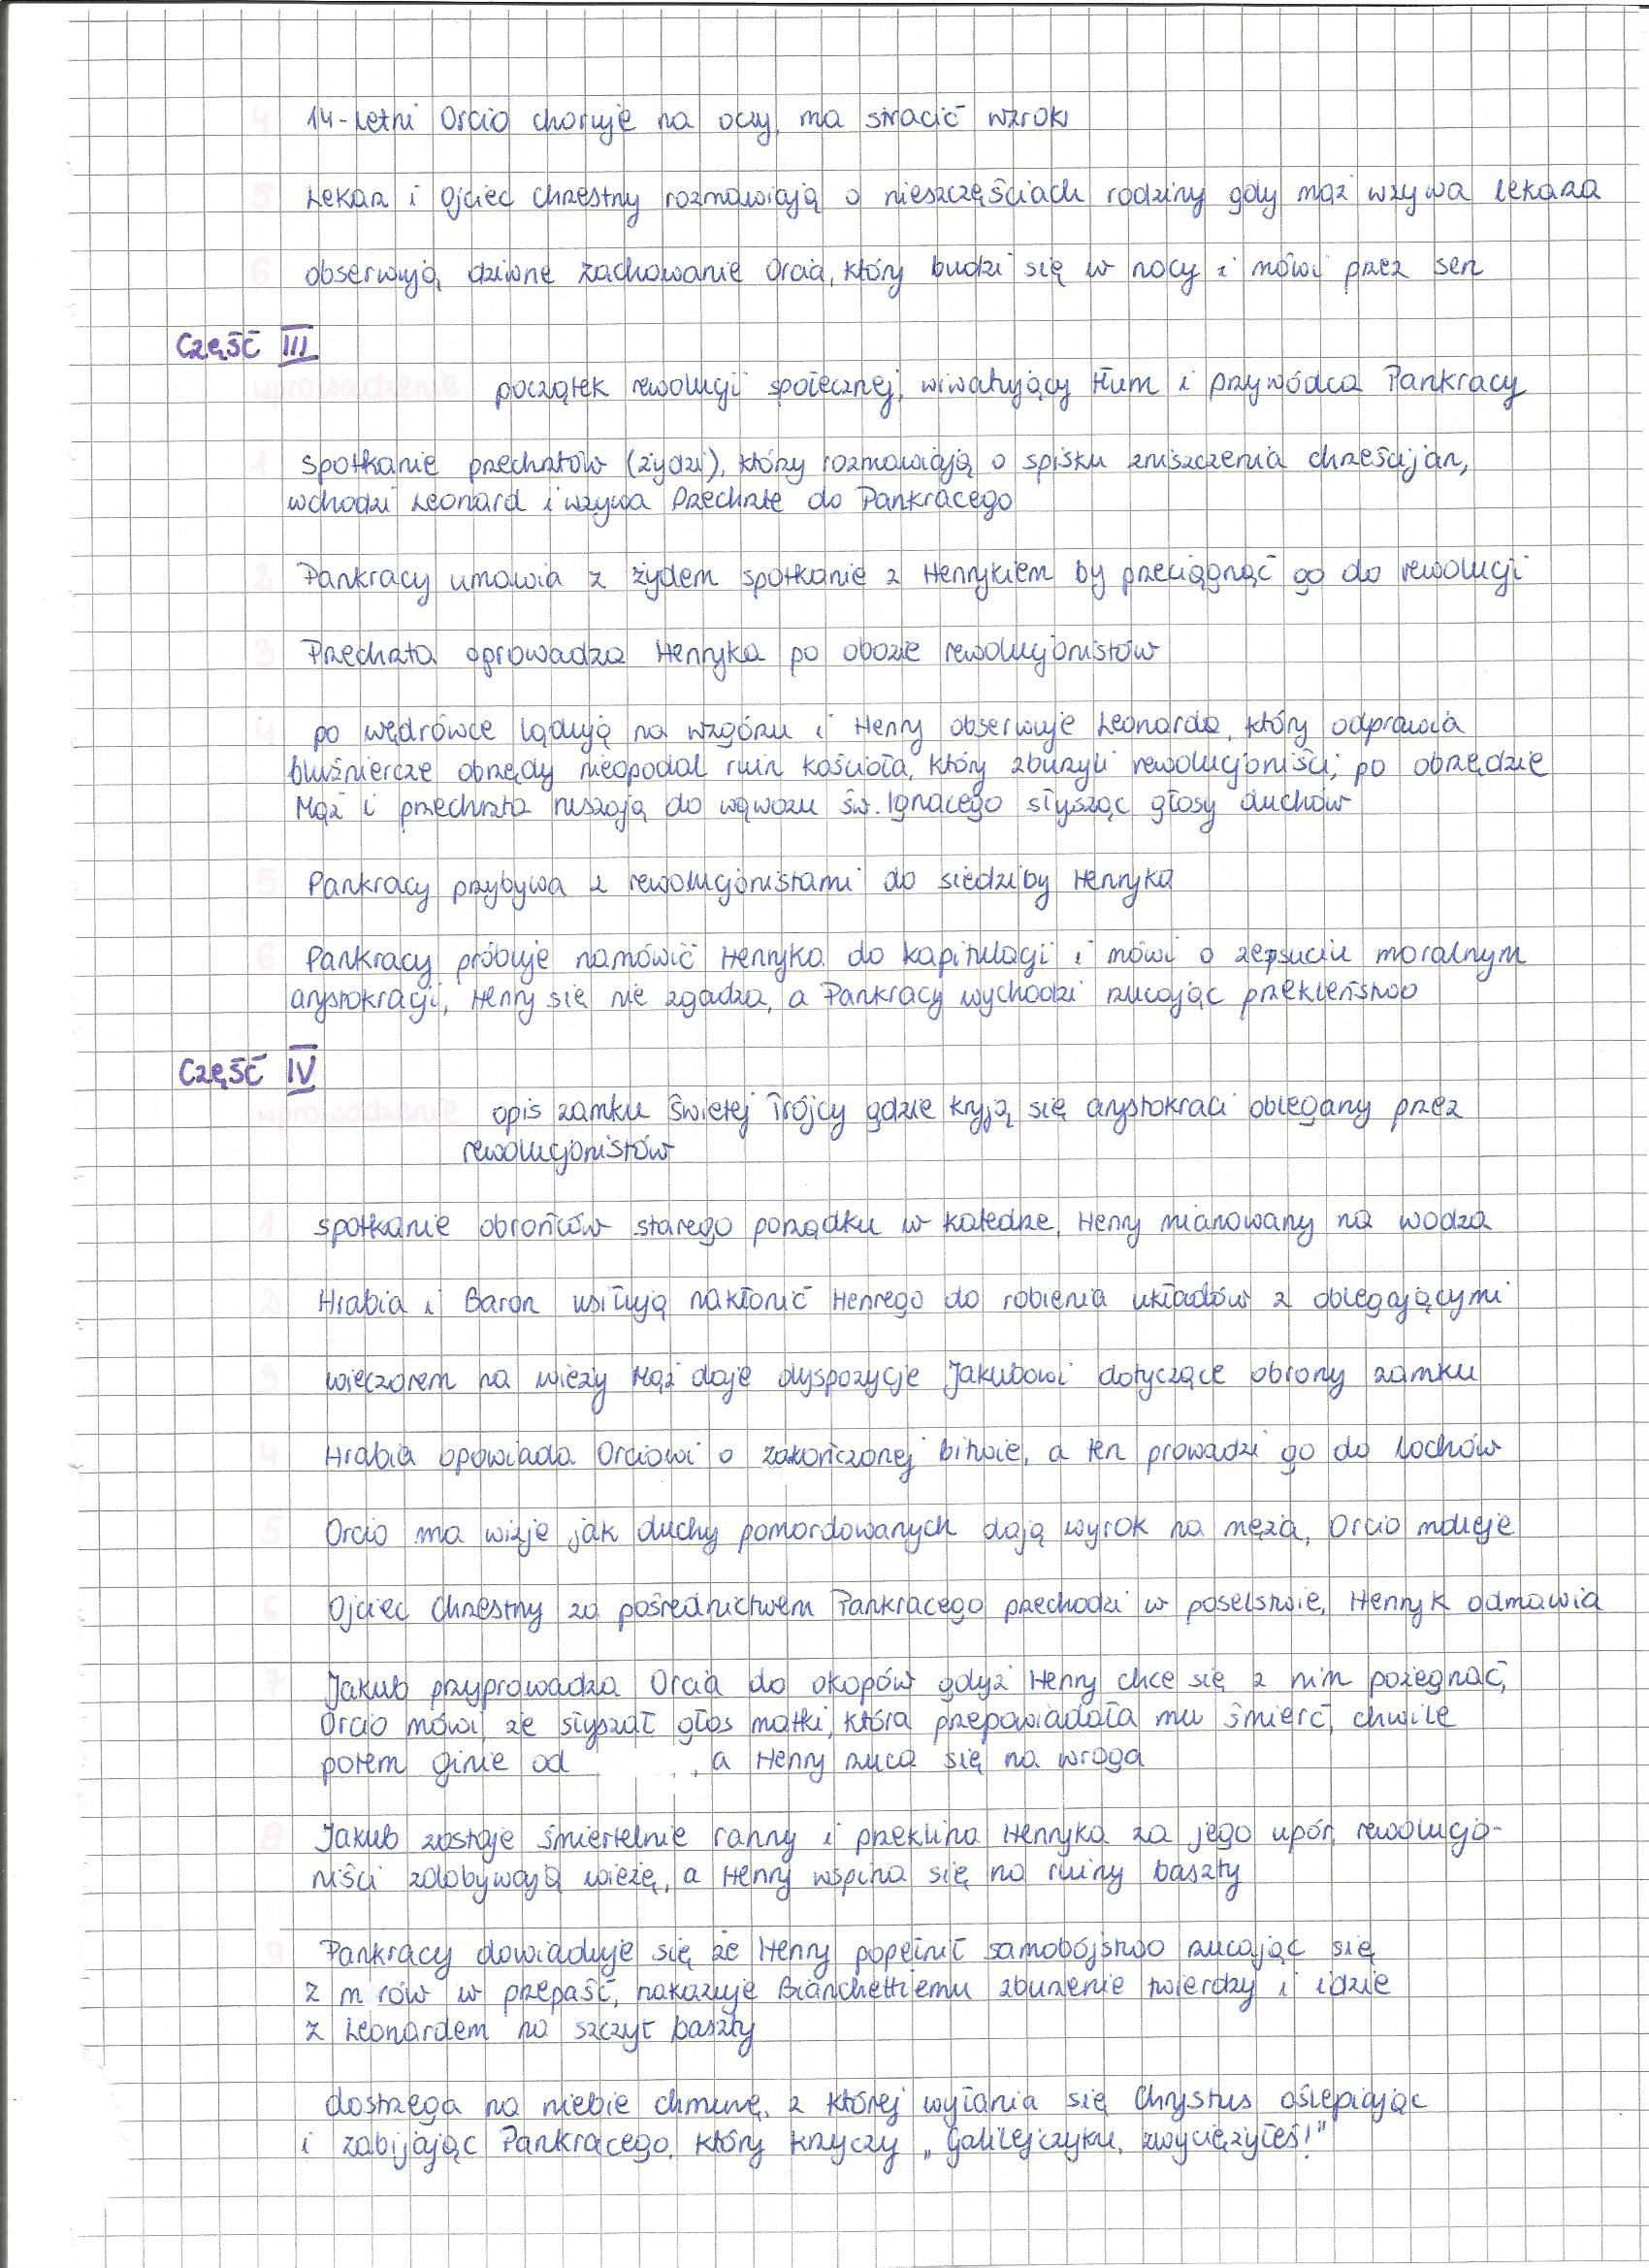 4 14-letni Orcio choruje na oczy, ma stracić wzrok
5 Lekarz i Ojciec Chrzestny rozmawiają o nieszczęściach rodziny gdy mąż wzywa lekarza
6 obserwują dziwne zachowanie Orcia, który budzi się w nocy i mówi przez sen
Część III
wprowadzenie początek rewolucji społecznej, wiwatujący tłum i przywódca Pankracy
1 spotkanie przechrztów (żydzi), którzy rozmawiają o spisku zniszczenia chrześcijan,
wchodzi Leonard i wzywa Przechrztę do Pankracego
2 Pankracy umawia z żydem spotkanie z Henrykiem by przeciągnąć go do rewolucji
3 Przechrzta oprowadza Henryka po obozie rewolucjonistów
4 po wędrówce lądują na wzgórzu i Henry obserwuje Leonarda, który odprawia
bluźniercze obrzędy nieopodal ruin kościoła, który zburzyli rewolucjoniści; po obrzędzie
Mąż i przechrzta ruszają do wąwozu św. Ignacego słysząc głosy duchów
5 Pankracy przybywa z rewolucjonistami do siedziby Henryka
6 Pankracy próbuje namówić Henryka do kapitulacji i mówi o zepsuciu moralnym
arystokracji, Henry się nie zgadza, a Pankracy wychodzi rzucając przekleństwo
Część IV
wprowadzenie opis zamku Świętej Trójcy gdzie kryją się arystokraci oblegany przez
rewolucjonistów
1 spotkanie obrońców starego porządku w katedrze, Henry mianowany na wodza
2 Hrabia i Baron usiłują nakłonić Henrego do robienia układów z oblegającymi
3 wieczorem na wieży Mąż daje dyspozycje Jakubowi dotyczące obrony zamku
4 Hrabia opowiada Orciowi o zakończonej bitwie, a ten prowadzi go do lochów
5 Orcio ma wizje jak duchy pomordowanych dają wyrok na męża, Orcio mdleje
6 Ojciec Chrzestny za pośrednictwem Pankracego przechodzi w poselstwie, Henryk odmawia
7 Jakub przyprowadza Orcia do okopów gdyż Henry chce się z nim pożegnać,
Orcio mówi, że słyszał głos matki, która przepowiadała mu śmierć, chwile
potem ginie od , a Henry rzuca się na wroga
8 Jakub zostaje śmiertelnie ranny i przeklina Henryka za jego upór, rewolucjo-
niści zdobywają wieżę, a Henry wspina się na ruiny baszty
9 Pankracy dowiaduje się że Henry popełnił samobójstwo rzucając się
z m rów w przepaść, nakazuje Bianchettiemu zburzenie twierdzy i idzie
z Leonardem na szczyt baszty
dostrzega na niebie chmurę, z której wyłania się Chrystus oślepiając
i zabijając Pankracego, który krzyczy „Galilejczyku, zwyciężyłeś!"